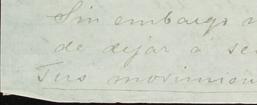 Sin embargo
de dejar a se
sus movimien